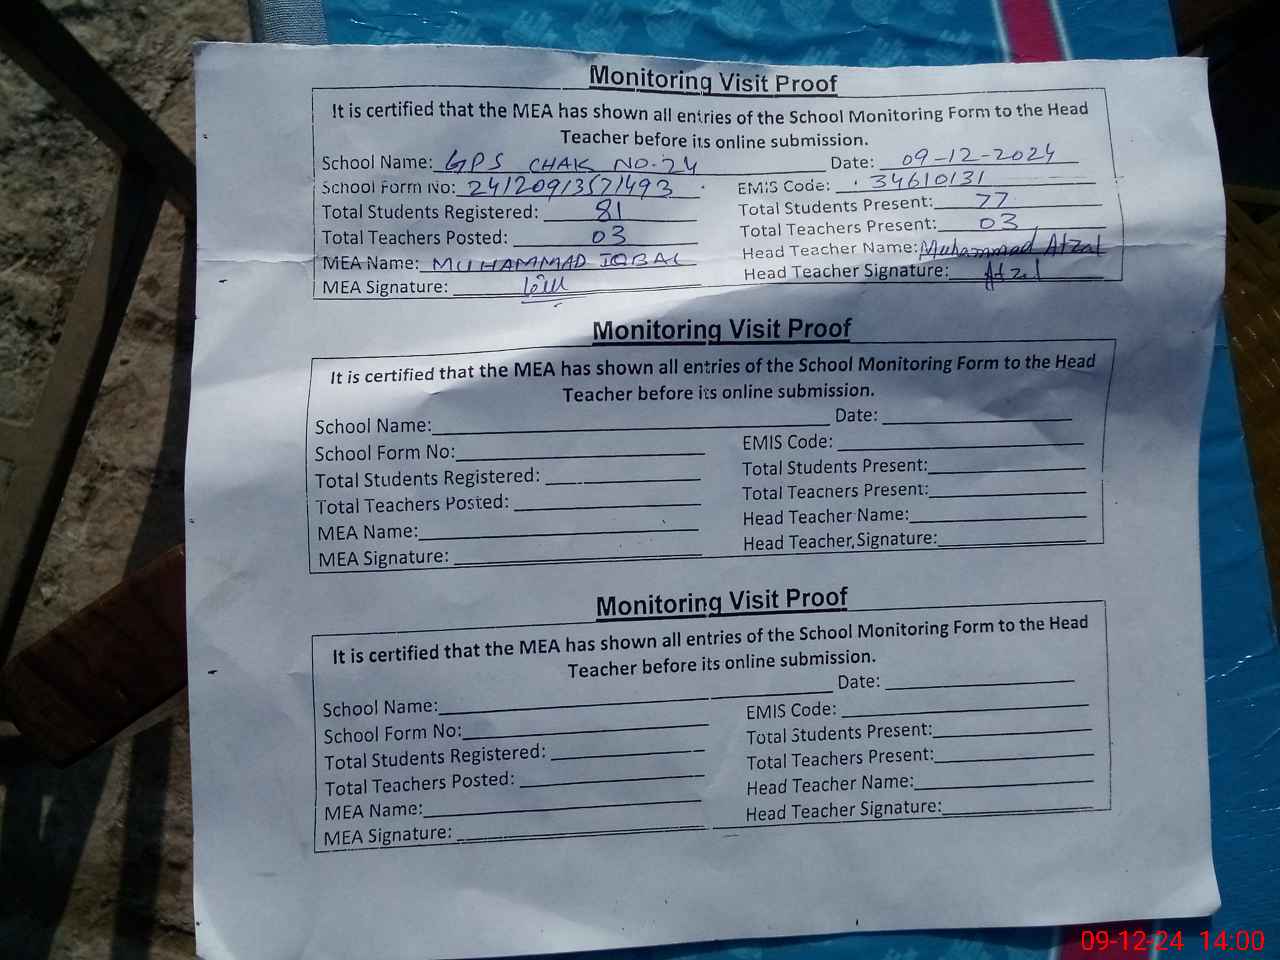 Monitoring Visit Proof
It is certified that the MEA has shown all entries of the School Monitoring Form to the Head
Teacher before its online submission.
School Name: GPS CHAK NO. 24 Date: 09-12-2024
School Form No: 241209/357/493 EMIS Code: 34610131
Total Students Registered: 81 Total Students Present: 77
Total Teachers Posted: 03 Total Teachers Present: 03
MEA Name: MUHAMMAD IQBAL Head Teacher Name: Muhammad Afzal
MEA Signature: Head Teacher Signature: Afzal
Monitoring Visit Proof
It is certified that the MEA has shown all entries of the School Monitoring Form to the Head
Teacher before its online submission.
School Name: Date:
School Form No: EMIS Code:
Total Students Registered: Total Students Present:
Total Teachers Posted: Total Teachers Present:
MEA Name: Head Teacher Name:
MEA Signature: Head Teacher Signature:
Monitoring Visit Proof
It is certified that the MEA has shown all entries of the School Monitoring Form to the Head
Teacher before its online submission.
School Name: Date:
School Form No: EMIS Code:
Total Students Registered: Total Students Present:
Total Teachers Posted: Total Teachers Present:
MEA Name: Head Teacher Name:
MEA Signature: Head Teacher Signature:
09-12-24 14:00